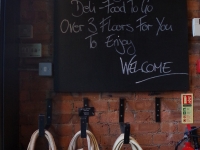 Deli - Food To Go
Over 3 Floors For You
To Enjoy
WELCOME